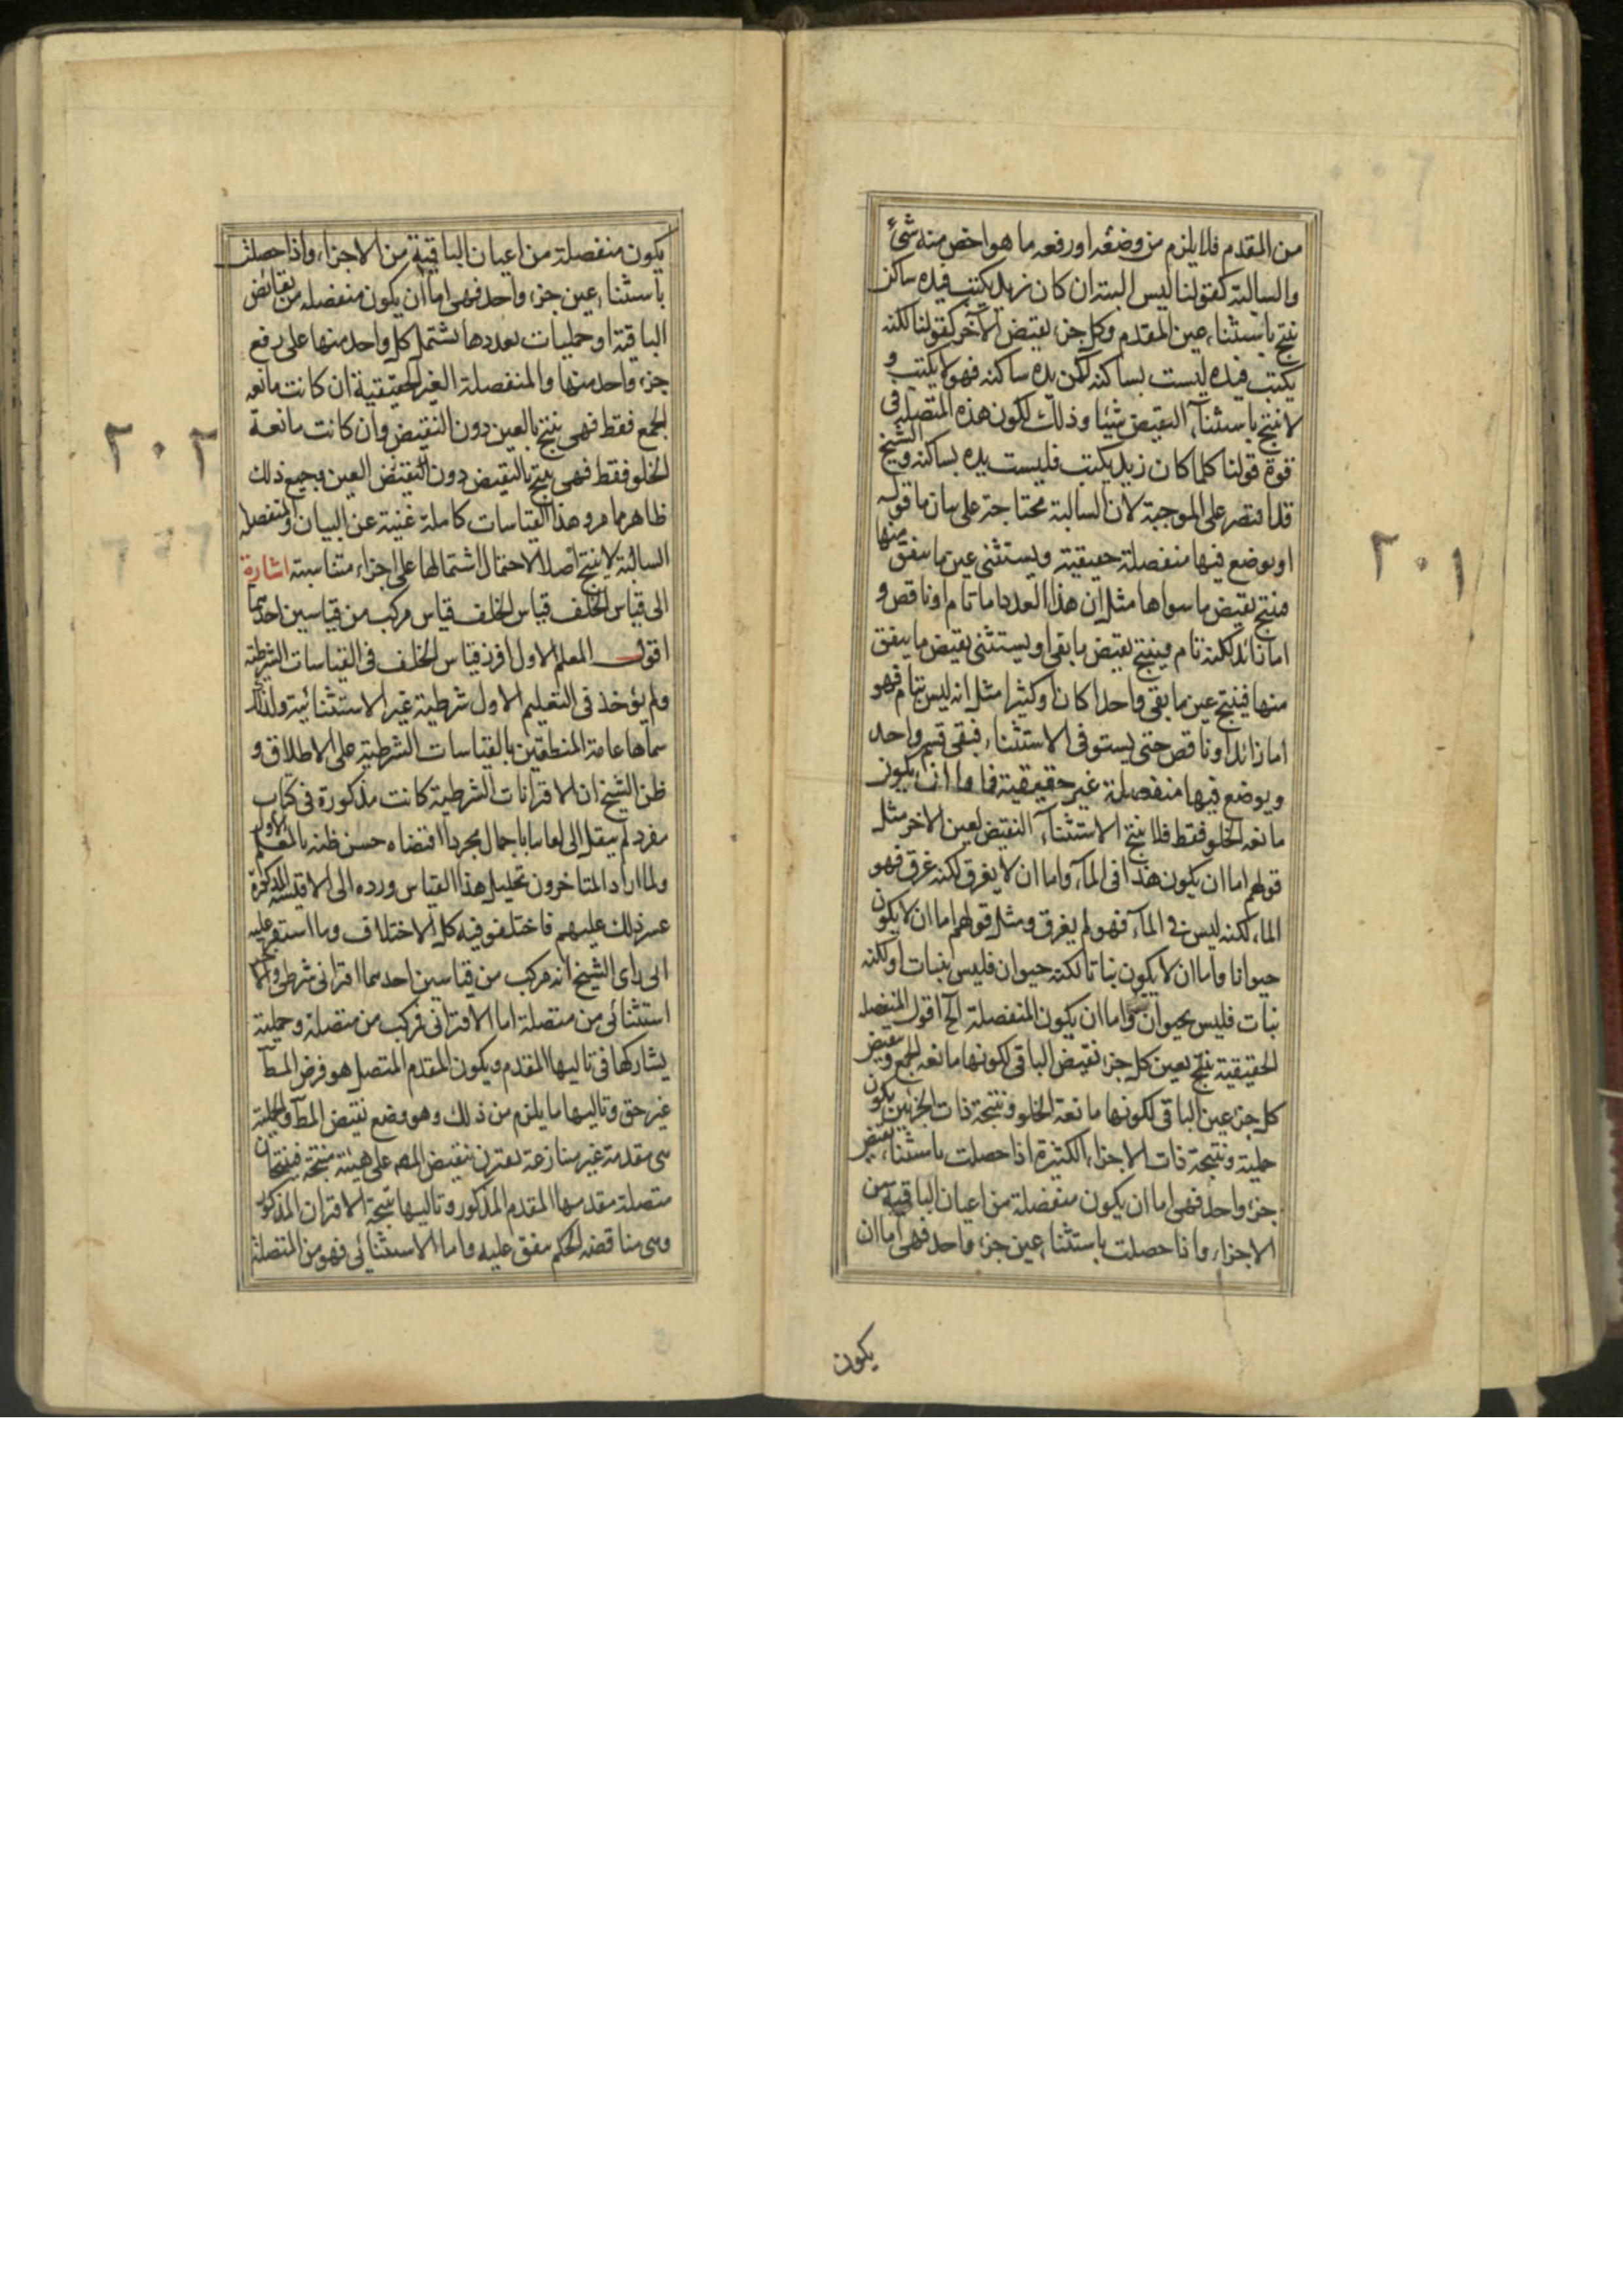 من المقدم فلا يلزم من وضعه او رفعه ما هو اخص منه شئ
والسالبة كقولنا ليس البته ان كان زيد يكتب فيده ساكن
ينتج باستثناء عين المقدم وكل جزء نقيض الآخر كقولنا لكنه
يكتب فيده ليست بساكنه لكن يده ساكنه فهو لا يكتب و
لا ينتج باستثناء النقيض شيئا وذلك لكون هذه المتصله فى
قوة قولنا كلما كان زيد يكتب فليست يده بساكنه والشيخ
قد اقتصر على الموجبة لان السالبة محتاجة على بيان ما قوله
او يوضع فيها منفصلة حقيقية ويستثنى عين ما يتفق منها
فينتج نقيض ما سواها مثل ان هذا العدد اما تام او ناقص و
اما زائد لكنه تام فينتج نقيض ما بقى او يستثنى نقيض ما يتفق
منها فينتج عين ما بقى واحدا كان او كثيرا مثل انه ليس بتام فهو
اما زائد او ناقص حتى يستوفى الاستثناء فيبقى قسم واحد
ويوضع فيها منفصلة غير حقيقية فاما ان يكون
مانعه الخلو فقط فلا ينتج الا استثناء النقيض لعين الاخر مثل
قولهم اما ان يكون هذا فى الماء واما ان لا يغرق لكنه غرق فهو
الماء لكنه ليس فى الماء فهو لم يغرق ومثل قولهم اما ان لا يكون
حيوانا واما ان لا يكون نباتا لكنه حيوان فليس بنبات او لكنه
نبات فليس بحيوان واما ان يكون المنفصلة الخ اقول المنفصله
الحقيقية ينتج بعين كل جزء نقيض الباقى لكونها مانعه الجمع وبنقيض
كل جزء عين الباقى لكونها مانعة الخلو ونتيجة ذات الجزئين يكون
حملية ونتيجة ذات الاجزاء الكثيرة اذا حصلت باستثناء نقيض
جزء واحد فهى اما ان يكون منفصلة من اعيان الباقية من
الاجزاء واذا حصلت باستثناء عين جزء واحد فهى اما ان
يكون
٢٠١
يكون منفصلة من اعيان الباقية من الاجزاء واذا حصلت
باستثناء عين جزء واحد فهى اما ان يكون منفصله من نقائض
الباقية او حمليات بعددها يشتمل كل واحد منها على رفع
جزء واحد منها والمنفصلة الغير الحقيقية ان كانت مانعه
الجمع فقط فهى ينتج بالعين دون النقيض وان كانت مانعة
الخلو فقط فهى ينتج بالنقيض دون النقيض العين وجميع ذلك
ظاهر مما مر وهذا القياسات كاملة غنية عن البيان والمنفصله
السالبة لا ينتج اصلا لاحتمال اشتمالها على اجزاء متناسبته اشارة
الى قياس الخلف قياس الخلف قياس مركب من قياسين احدهما
اقول المعلم الاول افرد قياس الخلف فى القياسات الشرطية
ولم يؤخذ فى التعليم الاول شرطية غير الاستثنائية ولذلك
سماها عامة المنطقيين بالقياسات الشرطية على الاطلاق و
ظن الشيخ ان الاقترانات الشرطية كانت مذكورة فى كتاب
مفرد لم ينقل الى لغاتنا باجمال مجردا اقتضاه حسن ظنه بالمعلم الاول
ولما اراد المتاخرون تحليل هذا القياس ورده الى الاقيسه المذكورة
عسر ذلك عليهم فاختلفو فيه كل الاختلاف وما استقر عليه
الى راى الشيخ انه مركب من قياسين احدهما اقترانى شرطى والاخر
استثنائى من متصلة اما الاقترانى فركب من متصلة وحملية
يشاركها فى تاليها المقدم ويكون المقدم المتصل هو فرض المط
غير حق وتاليها ما يلزم من ذلك وهو وضع نقيض المط والحملية
هى مقدمة غير منازعة تقترن بنقيض المط على هيئة منتجة فينتجان
متصلة مقدمها المقدم المذكور وتاليها نتيجة الاقتران المذكور
وهى مناقضه الحكم متفق عليه واما الاستثنائى فهو من المتصلة
٢٠٢